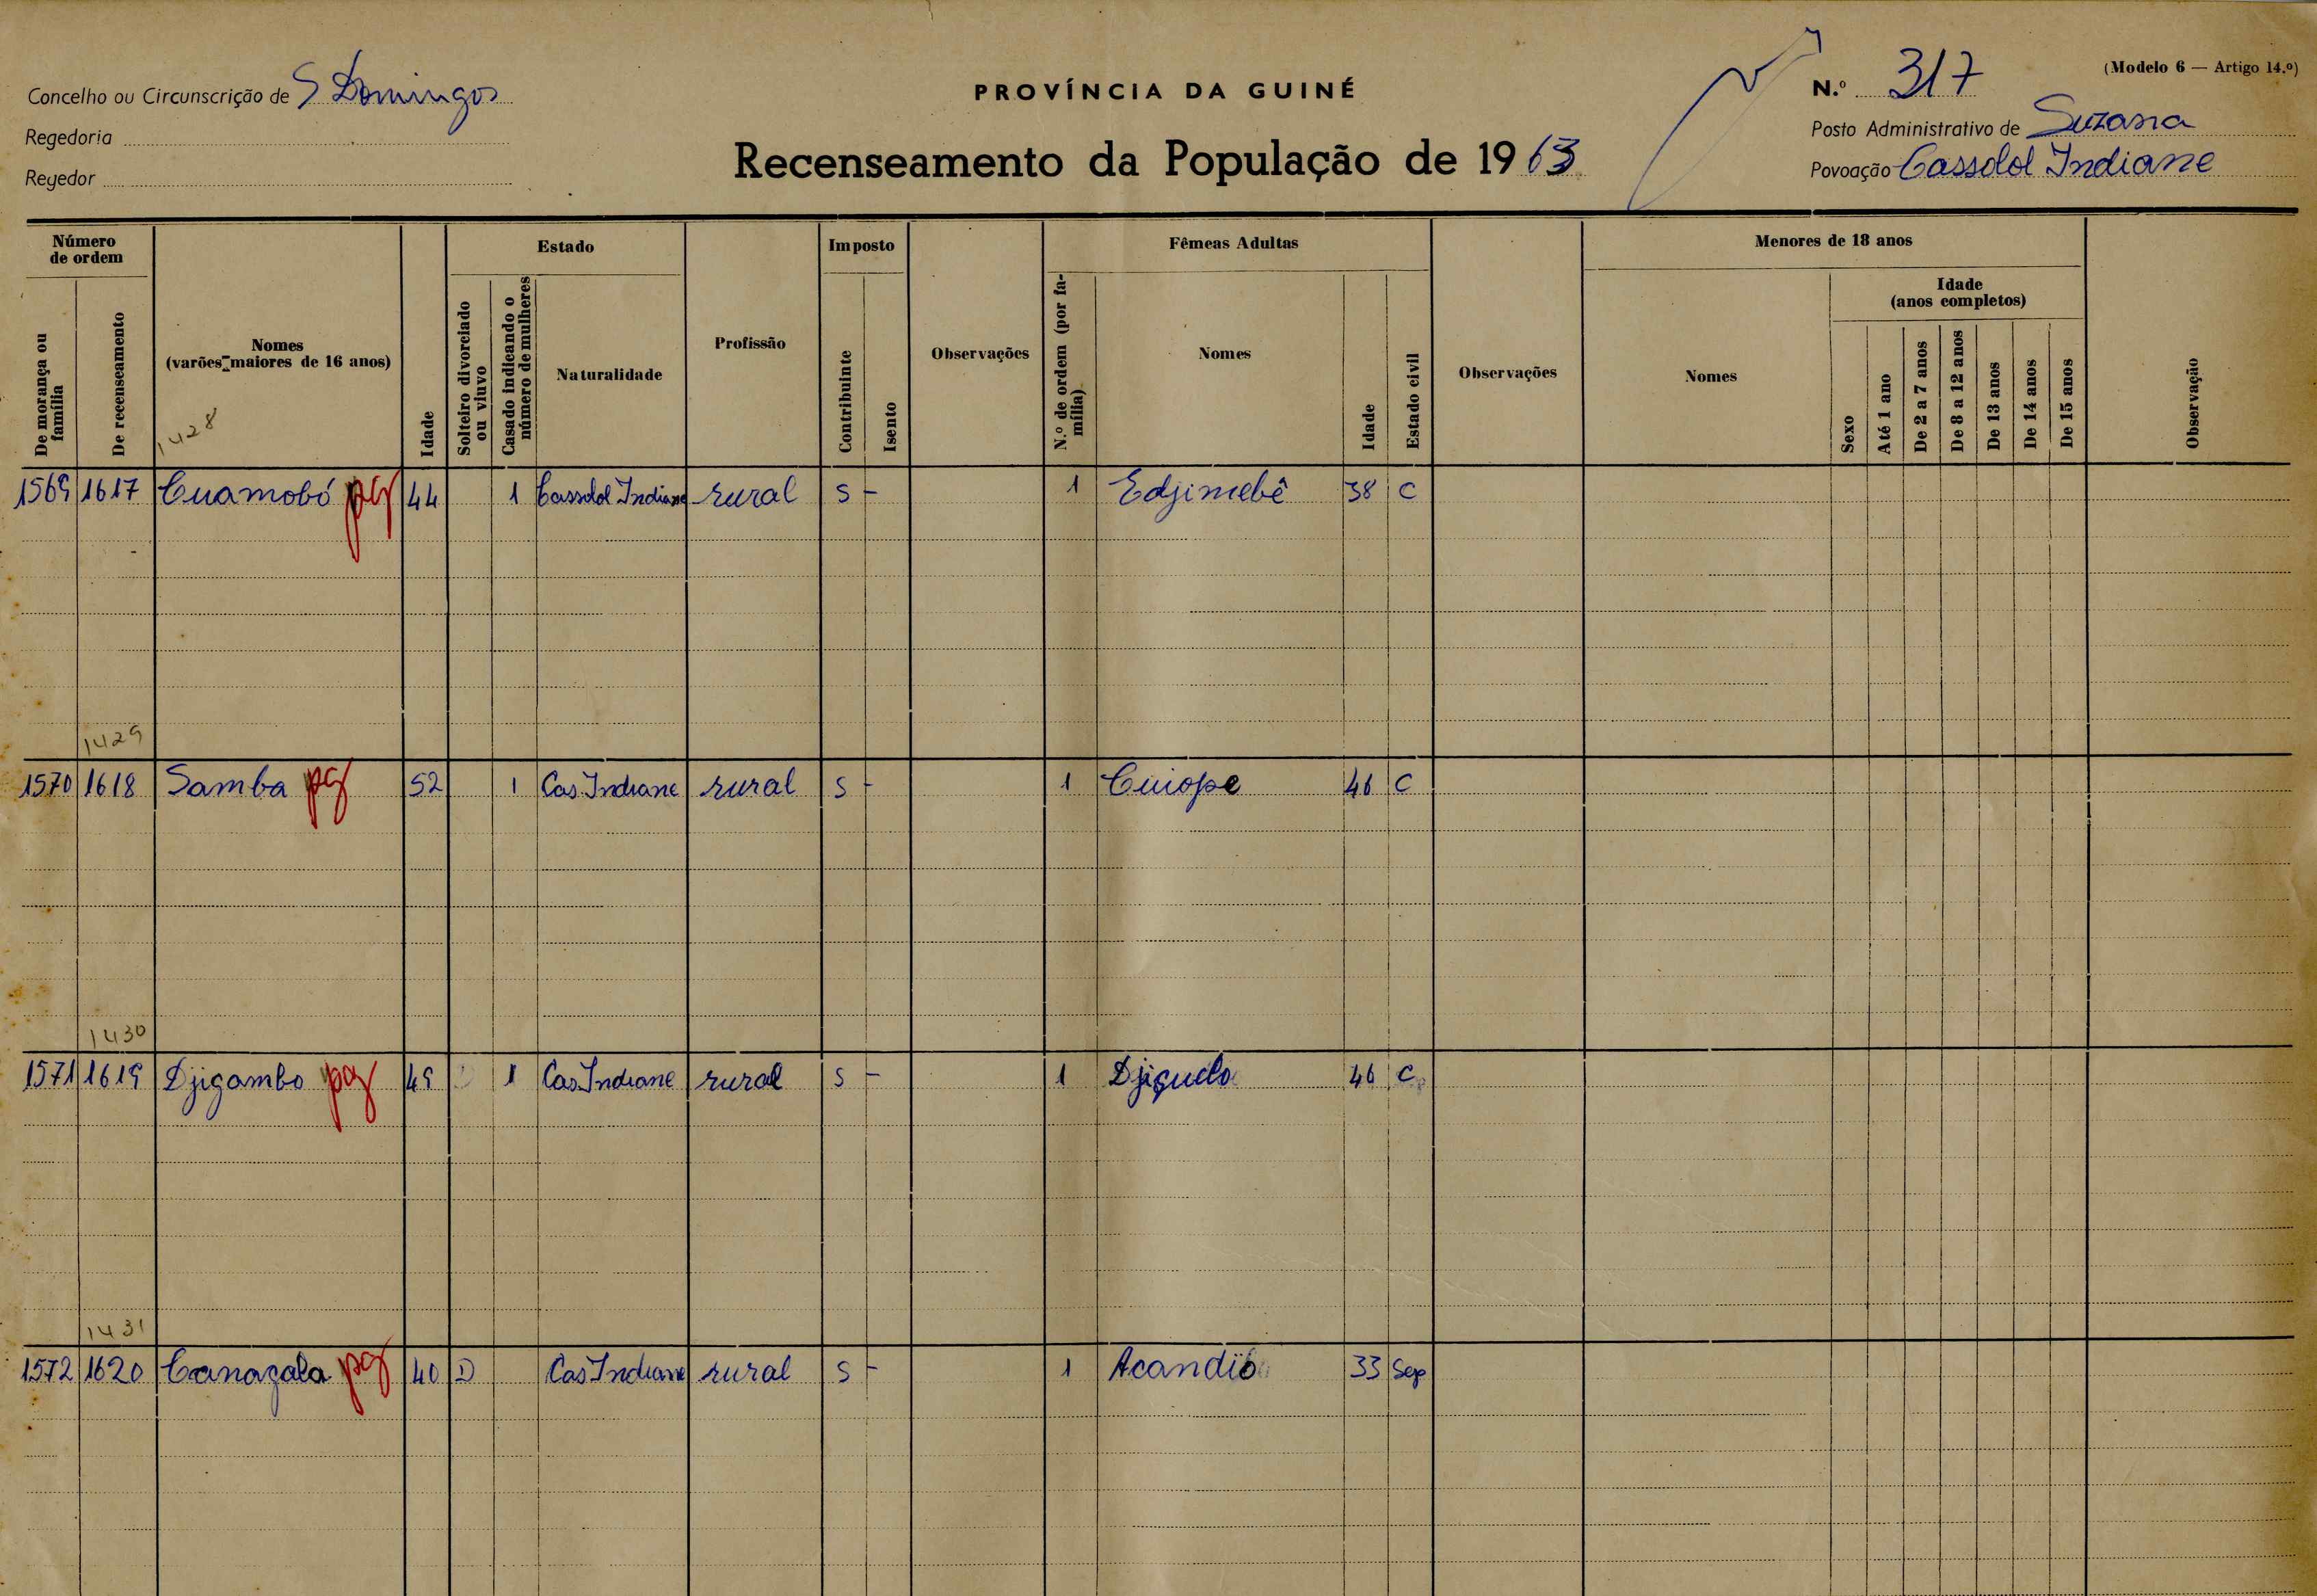 Concelho ou Circunscrição de S Domingos
PROVÍNCIA DA GUINÉ
N.º 317
(Modelo 6 — Artigo 14.º)
Regedoria
Posto Administrativo de Suzana
Regedor
Recenseamento da População de 1963
Povoação Cassolol Indiane
Número de ordem
De morança ou família
De recenseamento
Nomes
(varões maiores de 16 anos)
1428
Idade
Estado
Solteiro divorciado ou viuvo
Casado indicando o número de mulheres
Naturalidade
Profissão
Imposto
Contribuinte
Isento
Observações
Fêmeas Adultas
N.º de ordem (por família)
Nomes
Idade
Estado civil
Observações
Menores de 18 anos
Nomes
Idade
(anos completos)
Sexo
Até 1 ano
De 2 a 7 anos
De 8 a 12 anos
De 13 anos
De 14 anos
De 15 anos
Observação
1569 1617 Cuamobó pg 44 1 Cassolol Indiane rural S - 1 Edjimebê 38 C
1429
1570 1618 Samba pg 52 1 Cas. Indiane rural S - 1 Cuiope 46 C
1430
1571 1619 Djigambo pg 49 1 Cas. Indiane rural S - 1 Djiguelo 46 C
1431
1572 1620 Canagala pg 40 D Cas Indiane rural S - 1 Acandibo 33 Sep